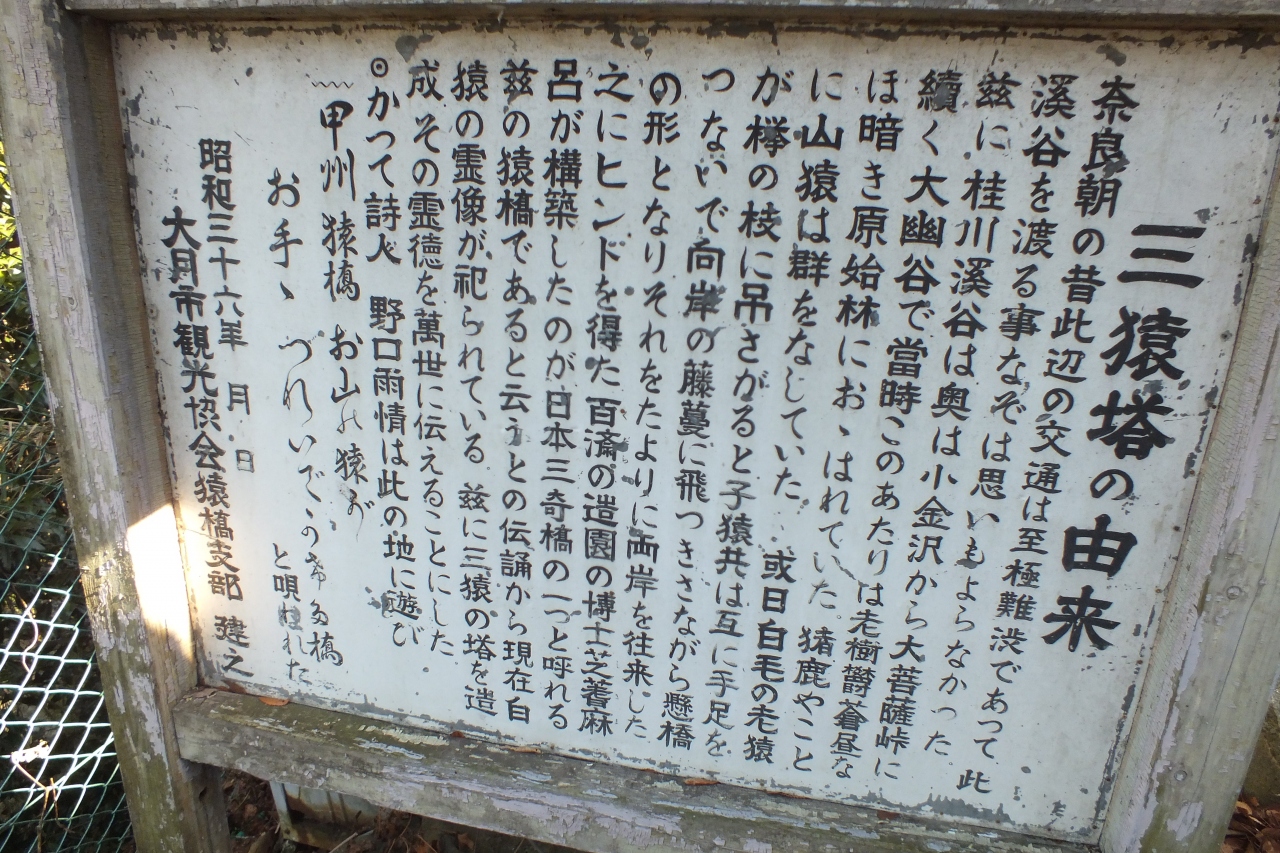 三猿塔の由来
奈良朝の昔此辺の交通は至極難渋であって此
溪谷を渡る事なぞは思いもよらなかった
茲に桂川溪谷は奥は小金沢から大菩薩峠に
續く大幽谷で當時このあたりは老樹欝蒼昼な
ほ暗き原始林におゝはれていた 猪鹿やこと
に山猿は群をなしていた 或日白毛の老猿
が欅の枝に吊さがると子猿共は互に手足を
つないで向岸の藤蔓に飛つきさながら懸橋
の形となりそれをたよりに両岸を往来した
之にヒンドを得た百済の造園の博士芝耆麻
呂が構築したのが日本三奇橋の一つと呼れる
茲の猿橋であると云うとの伝誦から現在白
猿の霊像が祀られている 茲に三猿の塔を造
成その霊徳を萬世に伝えることにした
◎かつて詩人 野口雨情は此の地に遊び
甲州猿橋 お山の猿が
お手ゝ つないで かけた橋
と唄われた
昭和三十六年 月 日
大月市観光協会猿橋支部 建之